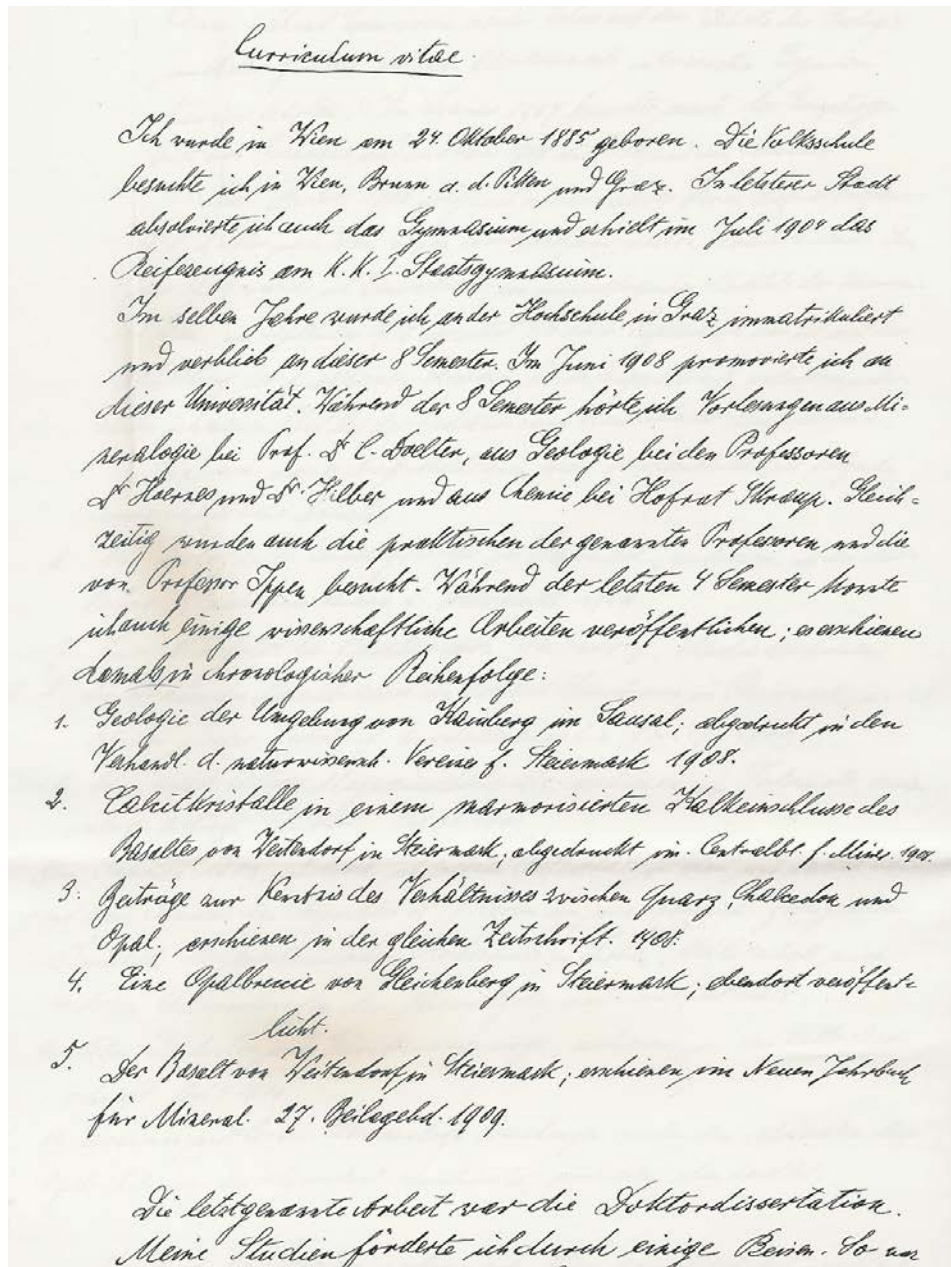 Curriculum vitae.
Ich wurde in Wien am 24. Oktober 1885 geboren. Die Volksschule
besuchte ich in Wien, Brunn a. d. Pitten und Graz. In letzterer Stadt
absolvierte ich auch das Gymnasium und erhielt im Juli 1904 das
Reifezeugnis am K. K. I. Staatsgymnasium.
Im selben Jahre wurde ich an der Hochschule in Graz immatrikuliert
und verblieb an dieser 8 Semester. Im Juni 1908 promovierte ich an
dieser Universität. Während der 8 Semester hörte ich Vorlesungen aus Mi-
neralogie bei Prof. Dr C. Doelter, aus Geologie bei den Professoren
Dr Hoernes und Dr. Hilber und aus Chemie bei Hofrat Skraup. Gleich-
zeitig wurden auch die praktischen der genannten Professoren und die
von Professor Ippen besucht. Während der letzten 4 Semester konnte
ich auch einige wissenschaftliche Arbeiten veröffentlichen; es erschienen
damals in chronologischer Reihenfolge:
1. Geologie der Umgebung von Kainberg im Sausal; abgedruckt in den
Verhandl. d. naturwissensch. Vereines f. Steiermark 1908.
2. Calcitkristalle in einem marmorisierten Kalkeinschlusse des
Basaltes von Weitendorf in Steiermark; abgedruckt im Centralbl. f. Miner. 1908.
3. Beiträge zur Kentnis des Verhältnisses zwischen Quarz, Chalcedon und
Opal; erschienen in der gleichen Zeitschrift. 1908.
4. Eine Opalbreccie von Gleichenberg in Steiermark; ebendort veröffent-
licht.
5. Der Basalt von Weitendorf in Steiermark; erschienen im Neuen Jahrbuch
für Mineral. 27. Beilagebd. 1909.
Die letztgenannte Arbeit war die Doktordissertation.
Meine Studien förderte ich durch einige Reisen. So war